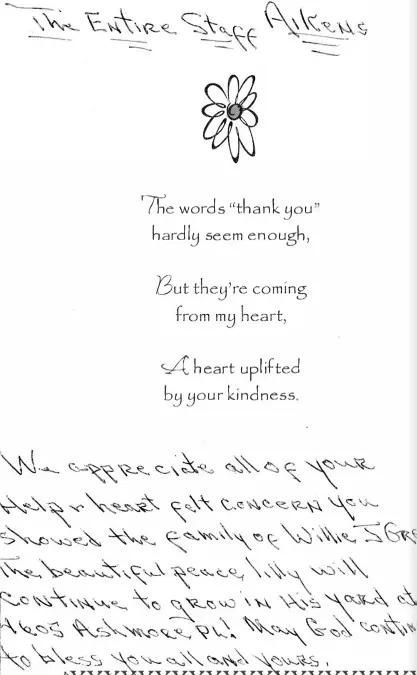 The Entire Staff Aikens
The words “thank you”
hardly seem enough,
But they're coming
from my heart,
A heart uplifted
by your kindness.
We appreciate all of your
Help & heart felt concern you
showed the family of Willie J
The beautiful peace lilly will
continue to grow in His yard at
4605 Ashmore PL! May God contin
to bless you all and yours.